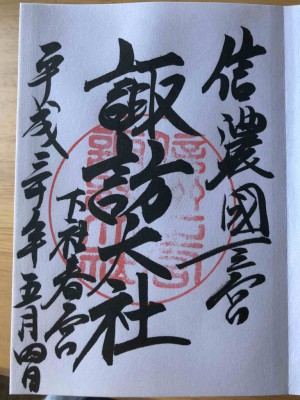 信濃國一宮
諏訪大社
下社春宮
平成三十年五月四日